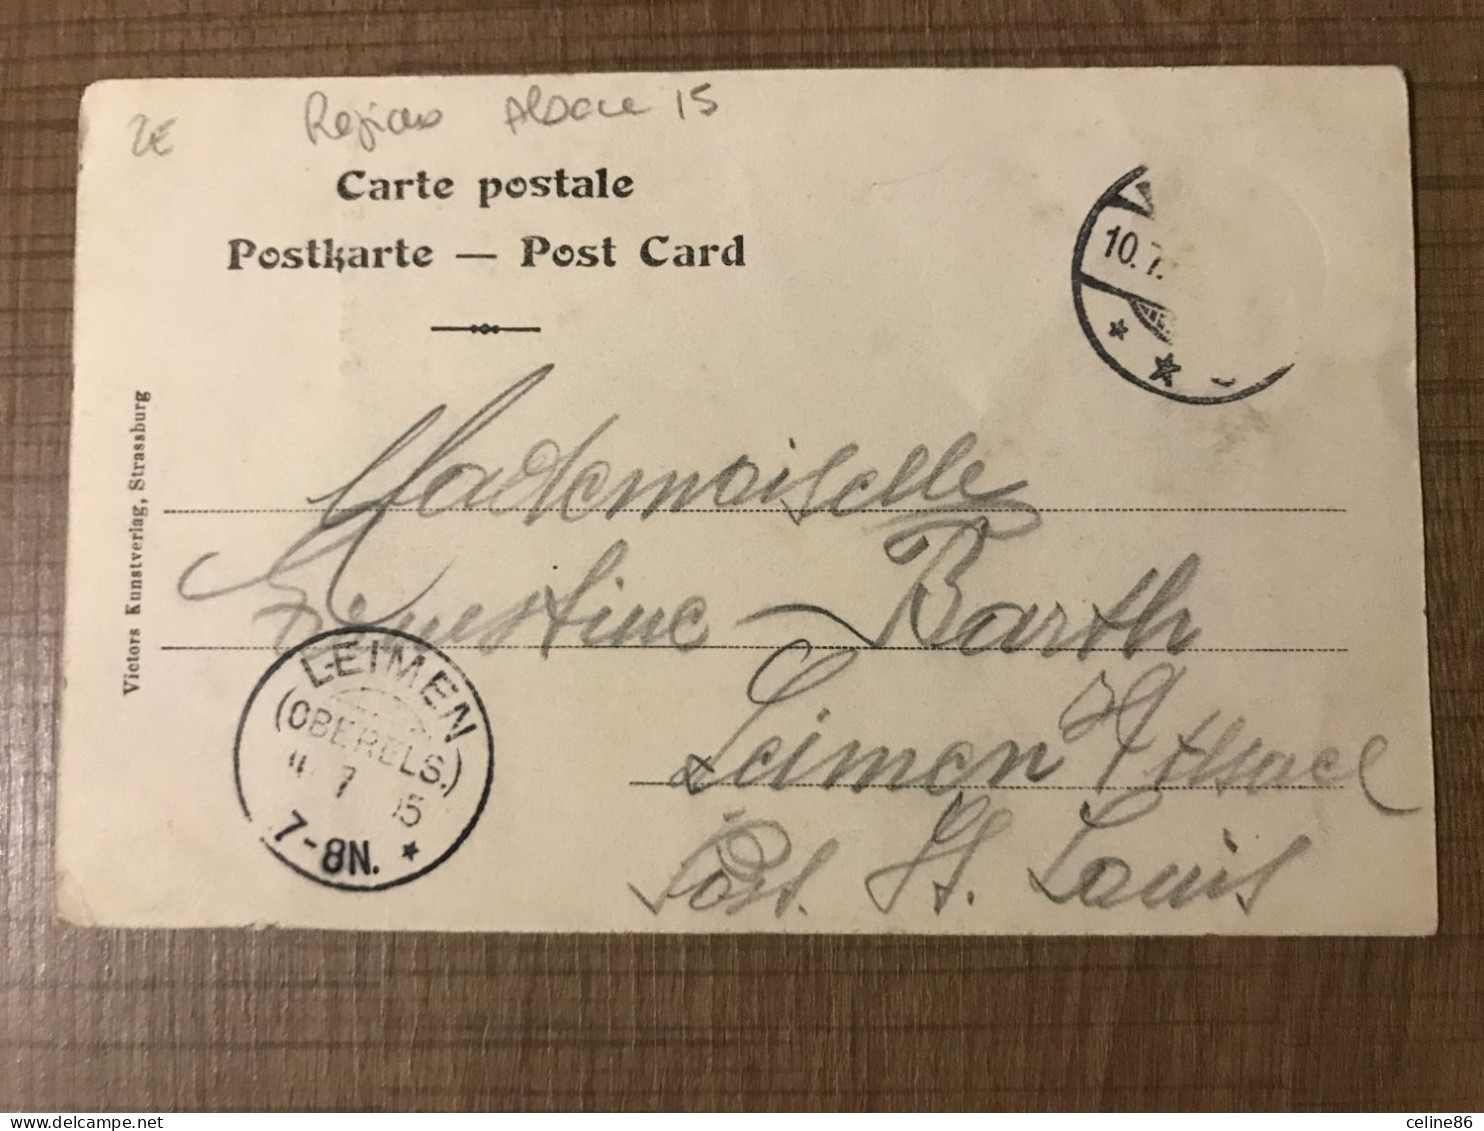 2€
Regions Alsace 15
Carte postale
Postkarte — Post Card
10.7.
Victors Kunstverlag, Strassburg
Mademoiselle
Ernestine Barth
Leimen Alsace
Post. St. Louis
LEIMEN
(OBERELS.)
11 7 5
7-8N.
celine86